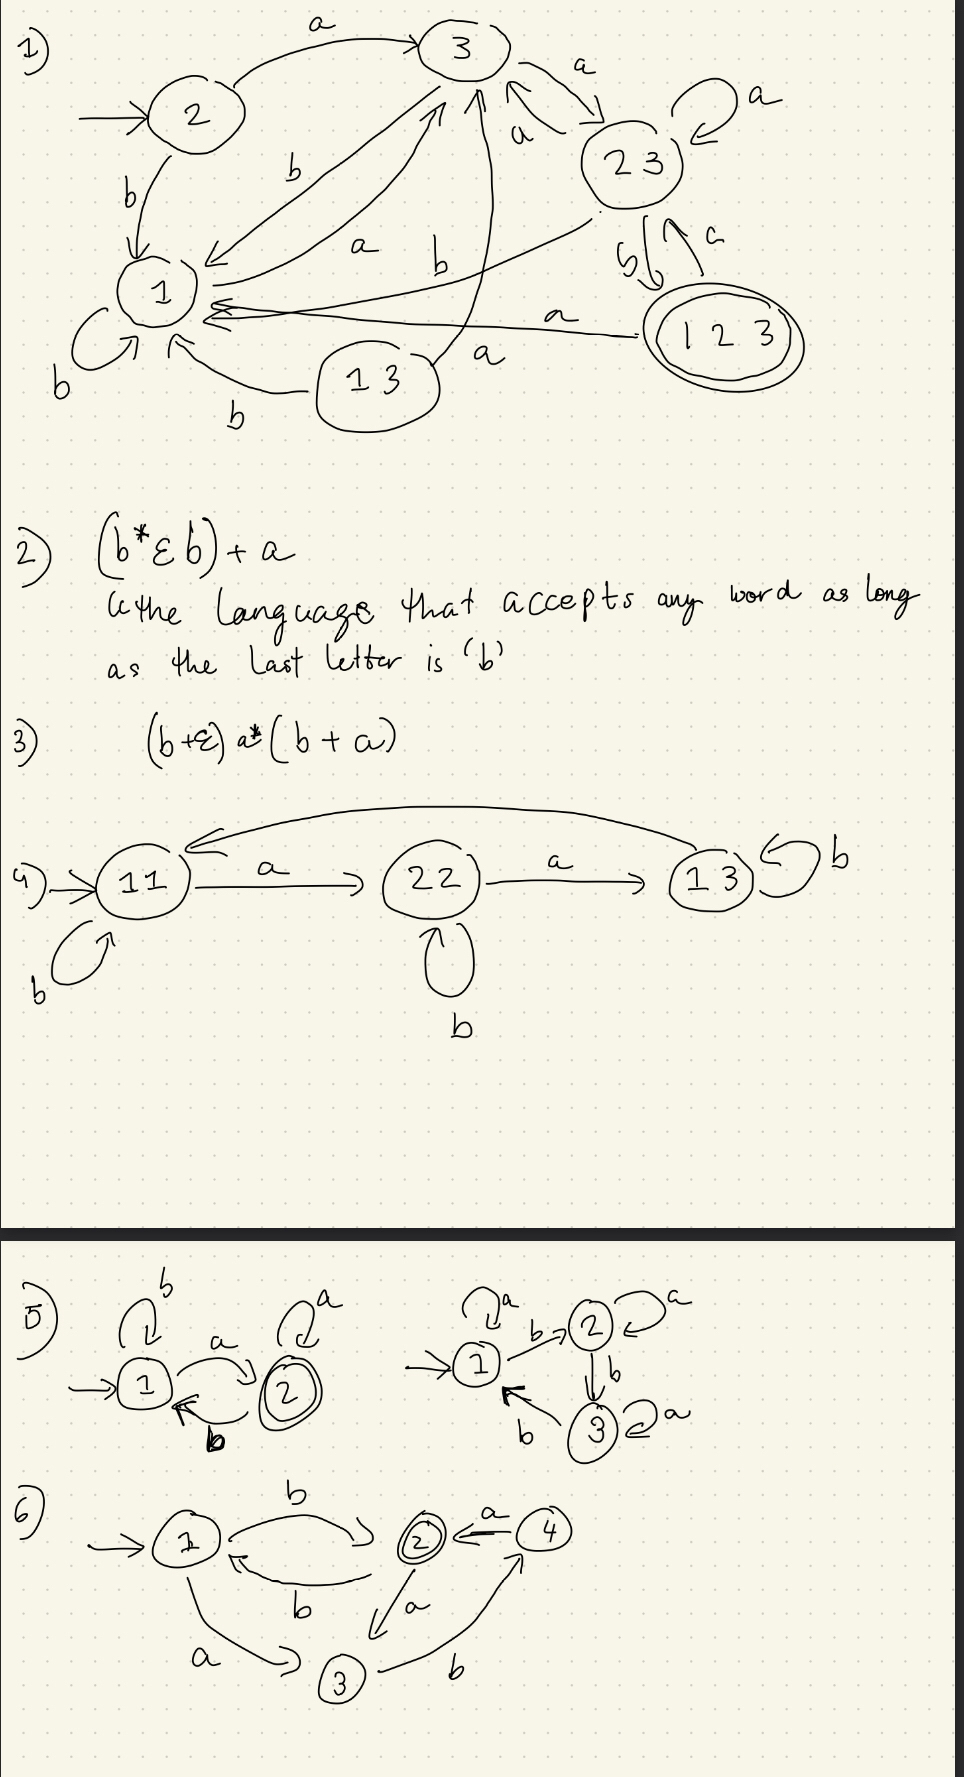 1)
a
3
2
a
a
a
2 3
b
b
a
b
b
a
1
a
1 2 3
b
1 3
a
b
2) (b*εb) + a
the language that accepts any word as long
as the last letter is 'b'
3) (b+ε) a*( b + a)
4) 1 1 a 2 2 a 1 3 b
b
b
5) b
a
a
1
2
b
a
b
2
a
1
b
b
3
a
6) b
1
2
a
4
b
a
a
3
b